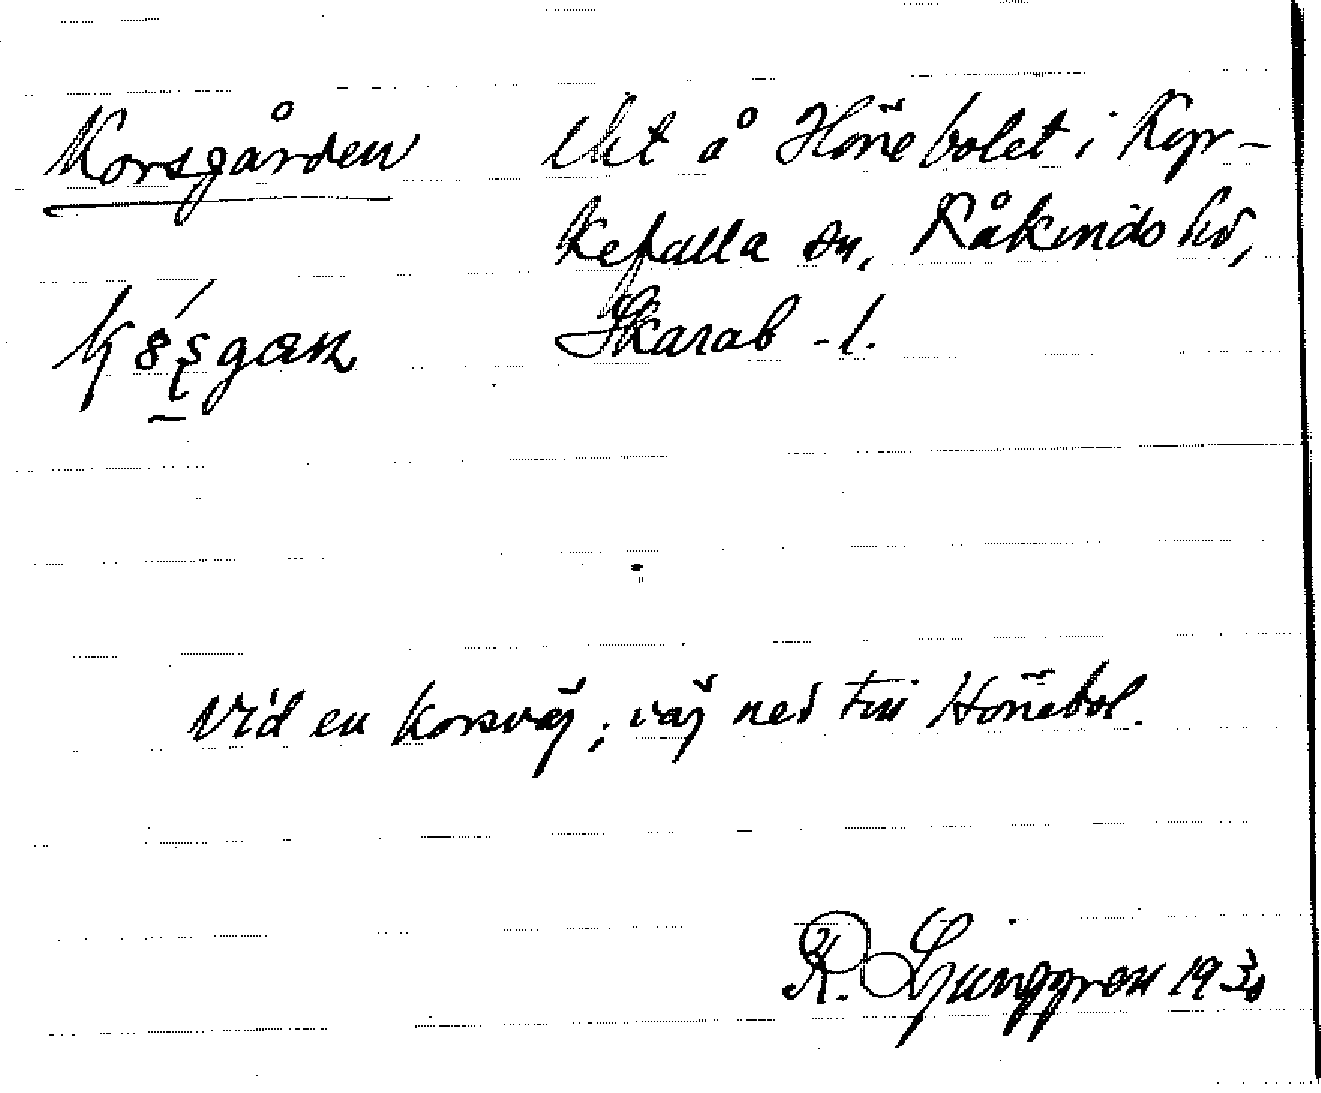 Korsgården
Lht å Hönebolet i Kyr-
kefalla sn, Kåkinds hd,
Skarab. l.
Vid en korsväj; väj ned till Hönebol.
R. Ljunggren 1930